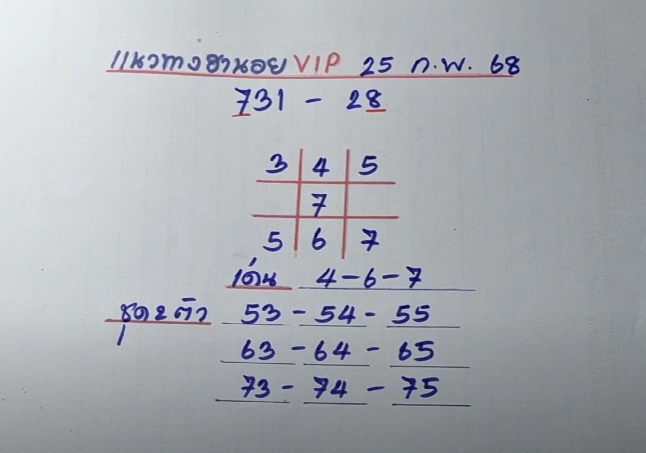 แนวทางฮานอย VIP 25 ก.พ. 68
731 - 28
3 4 5
7
5 6 7
เด่น 4-6-7
ชุด 2 ตัว 53 - 54 - 55
63 - 64 - 65
73 - 74 - 75